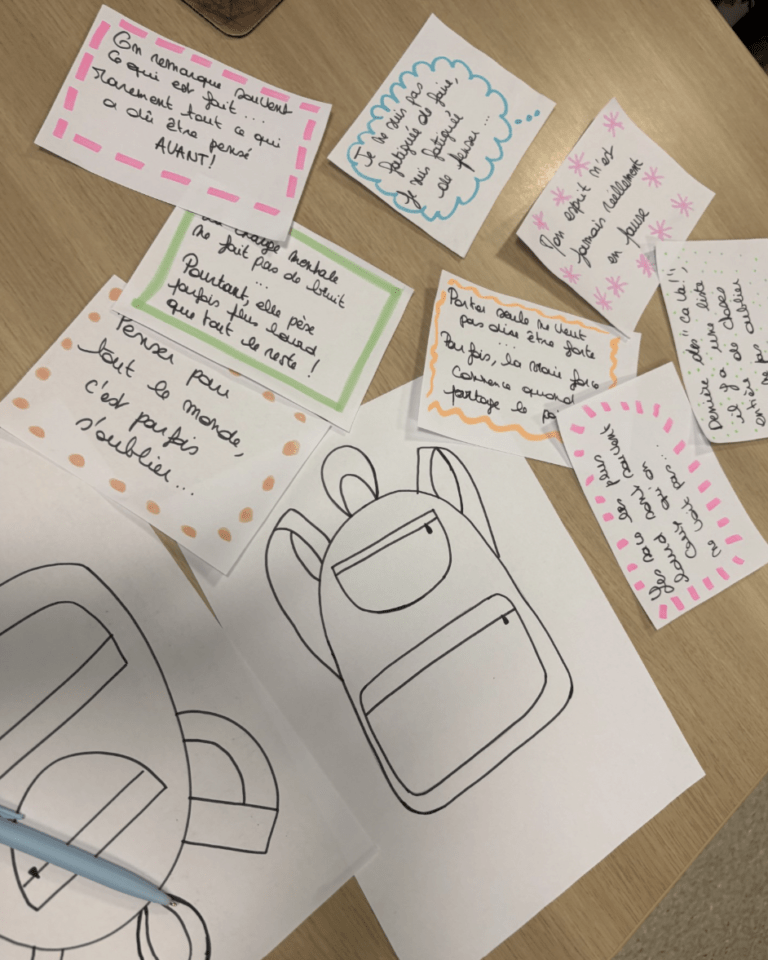 On remarque souvent
Ce qui est fait...
Rarement tout ce qui
a dû être pensé
AVANT!
Je ne suis pas
fatiguée de faire,
Je suis fatiguée
de penser...
Mon esprit n'est
jamais réellement
en pause
charge mentale
ne fait pas de bruit
...
Pourtant, elle pèse
parfois plus lourd
que tout le reste !
Porter seule ne veut
pas dire être forte
...
Parfois, la vraie force
commence quand
partage le
Derrière des "ca va!",
il y a une liste
entière de choses
ne pas oublier
Penser pour
tout le monde,
c'est parfois
s'oublier...
Les sacs les plus
lourds sont souvent
ceux qu'on
ne voit pas...